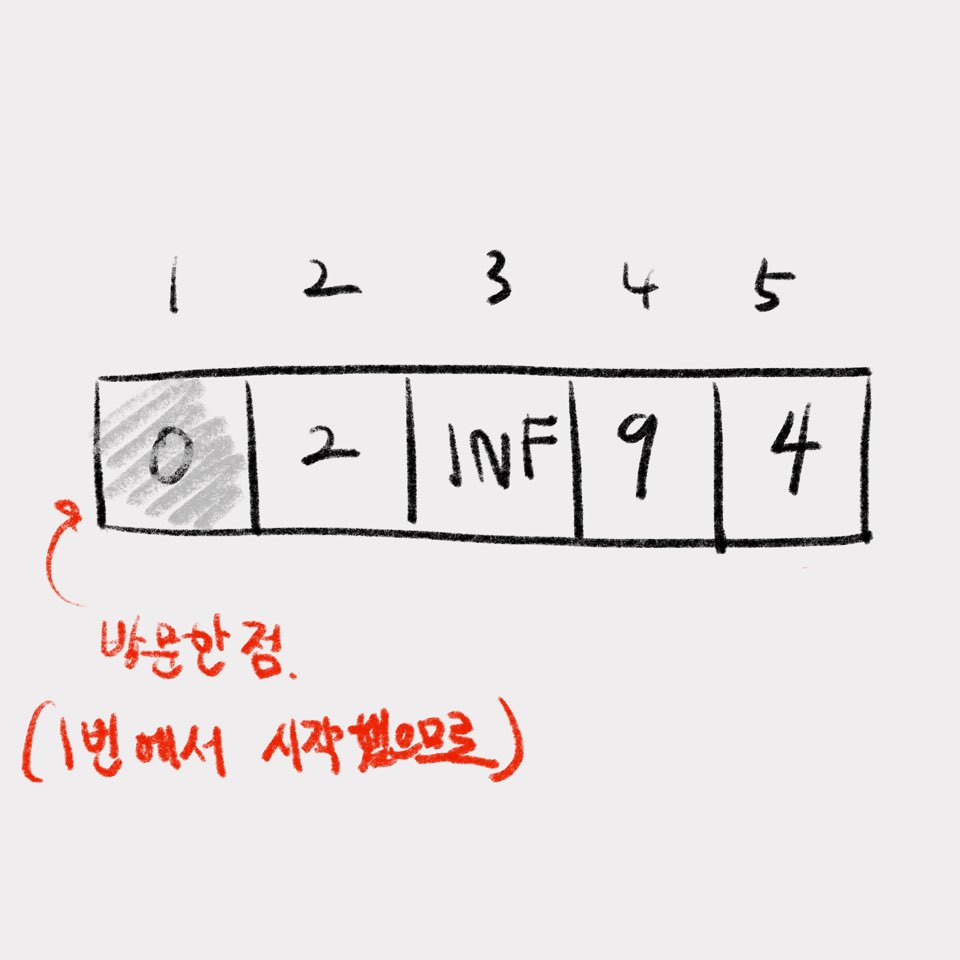 1 2 3 4 5
0 2 INF 9 4
방문한 점.
(1번에서 시작했으므로)